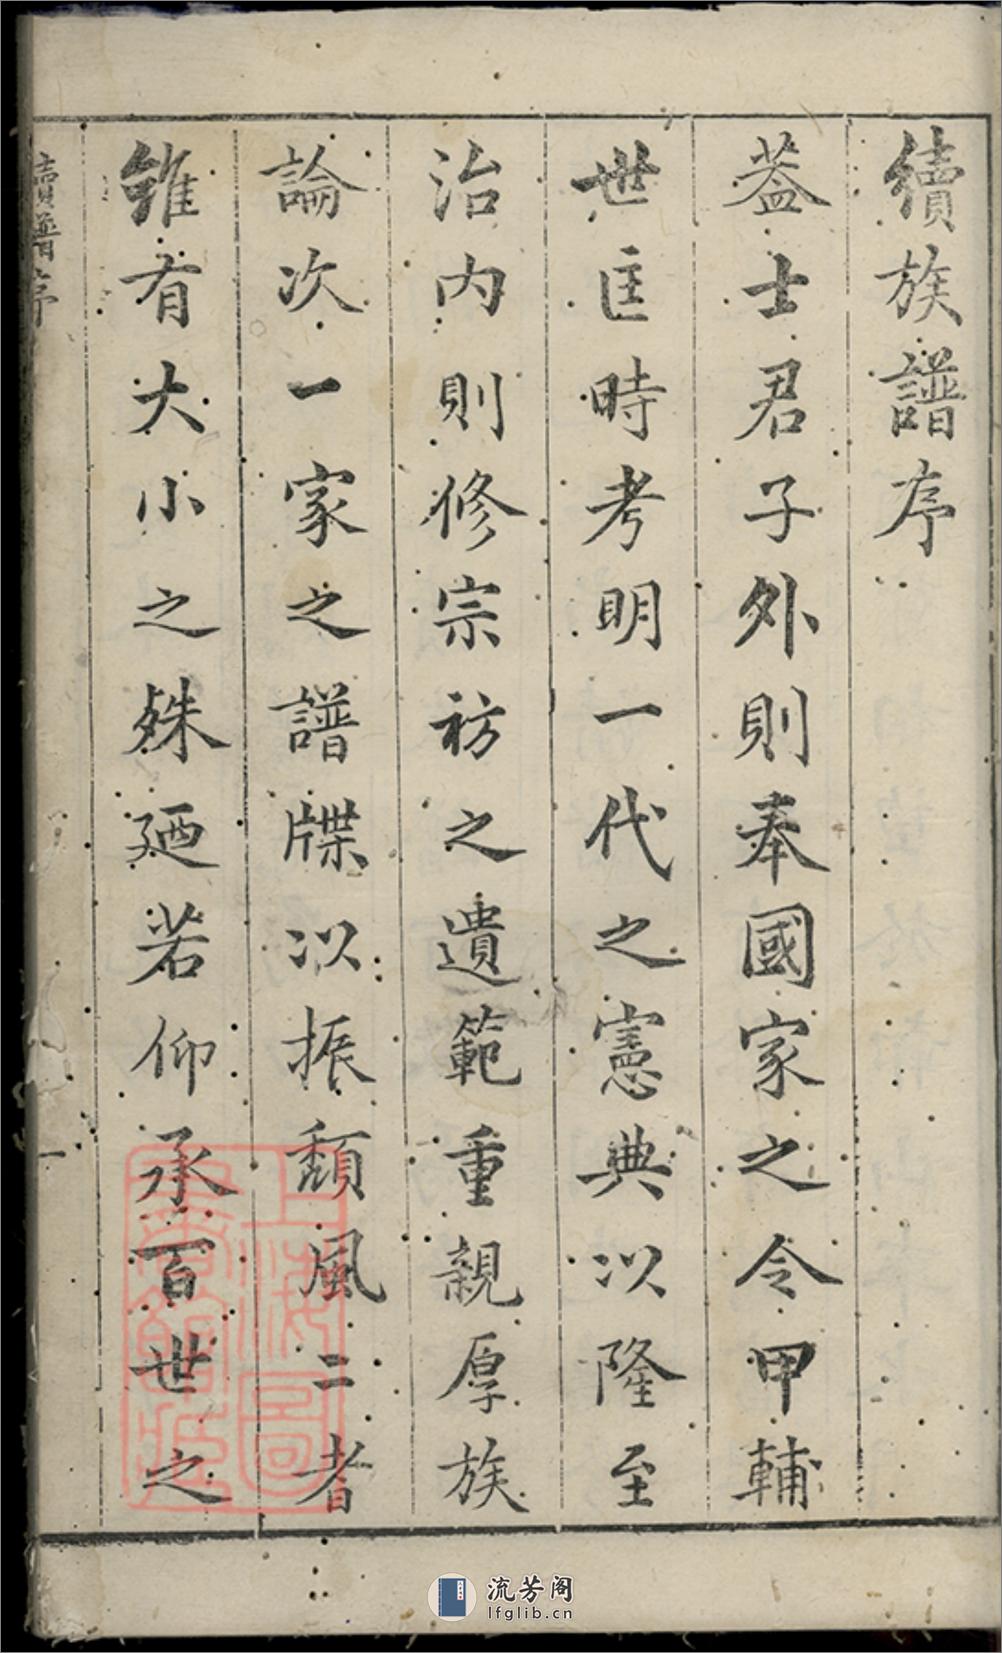 續族譜序
葢士君子外則奉國家之令甲輔
世匡時考明一代之憲典以隆至
治內則修宗祊之遺範重親厚族
論次一家之譜牒以振頹風二者
雖有大小之殊廼若仰承百世之
續譜序
一
上海圖書館藏
流芳阁
lfglib.cn